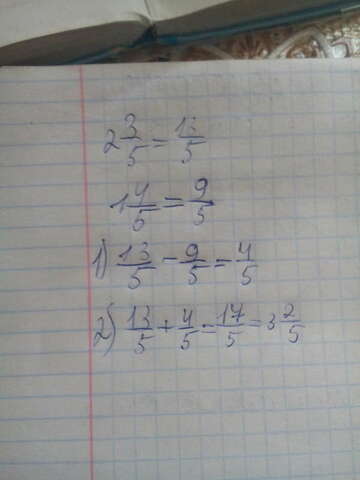 2 3/5 = 13/5
1 4/5 = 9/5
1) 13/5 - 9/5 = 4/5
2) 13/5 + 4/5 = 17/5 = 3 2/5